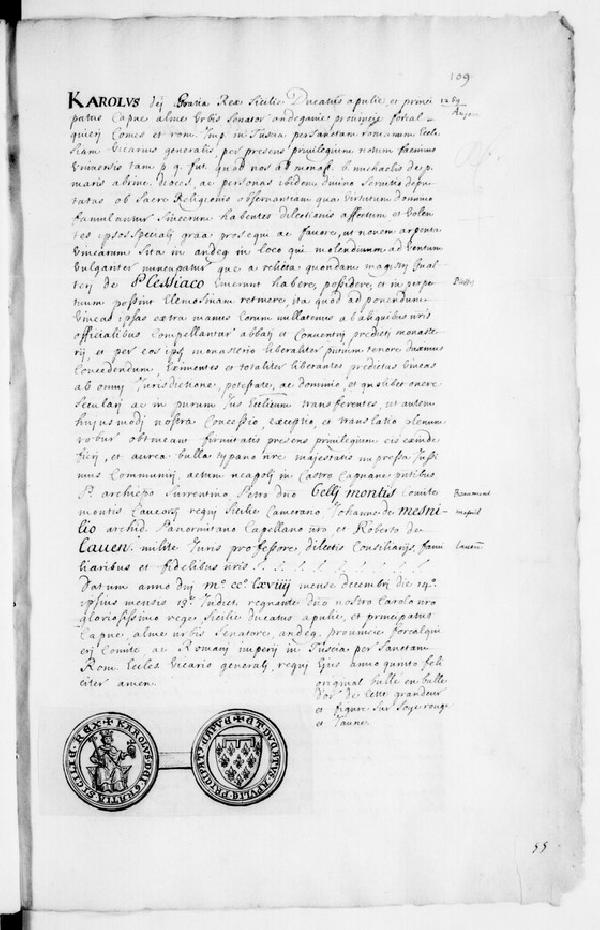 109
KAROLVS dej Gratia Rex Sicilie Ducatus apulie, et princi
patus Capue alme Vrbis Senator andegavie provincie forcal=
querij Comes et rom. Imp. in Tuscia per sanctam romanam Eccle
siam Vicarius generalis, per presens privilegium notum facimus
Vniversis tam p. q. fut. quod nos ad monast. b. michaelis de p.
maris abbne. deoces. ac personas ibidem divino servitio depu
tatas ob Sacre Religionis observantiam qua virtutum domino
famulantur Sincerum habentes dilectionis affectum et volen
tes ipsos speciali graa. prosequi ac favore, ut novem arpenta
vinearum Sita in andeg. in loco qui molendinum ad ventum
vulgariter nuncupatur que a relicta quondam magistri Gual
terij de Plessiaco emerunt habere, possidere, et in perpe
tuum possint Elemosinam retinere, ita quod ad ponendum
vineas ipsas extra manus eorum nullatenus ab aliquibus nris
officialibus Compellantur abbatj et Conventuj predicti monaste
rij, et per eos ipsj monasterio liberaliter presentium tenore duximus
Concedendum, Eximentes et totaliter liberantes predictas vineas
ab omnj Jurisdictione, potestate, ac dominio, et quolibet onere
Seculari ac in purum Jus Ecclicum transferentes, ut autem
hujusmodj nostra Concessio, exceptio, et translatio plenum
robur obtineant firmitatis presens privilegium eis exinde
fierj, et aurea bulla typario nre majestatis impressa Jussi
mus Communirj, actum neapolj in Castro Capuane pntibus
P. archiepo Surrentino, Petro dno Bellj montis Comite
montis Caveosij regnj Sicilie Camerario Johanne de mesni
lio archid. Panormitano Capellano nro et Roberto de
Laven. milite Juris professore dilectis Consiliarijs, fami
liaribus et fidelibus nris
Datum anno dnj mo. cco. lxviiij mense decembrj die 14o.
ipsius mensis 13o. Indict. regnante dno nostro Carolo nro
gloriosissimo rege Sicilie ducatus apulie, et principatus
Capue, alme urbis Senatore, andeg. provincie forcalqui
erj Comite ac Romanj imperij in Tuscia per Sanctam
Rom. Eccles. Vicario generalj, regnj Ejus anno quinto feli
citer amen.
1269
Anjou
Plessis
Beaumont
mesnil
Laven
original bulle en bulle
d'or de cette grandeur
et figure sur soye rouge
et Jaune
KAROLVS DEI GRATIA SICILIE REX
ET DVCATVS APVLIE PRICIPAT' CAPVE
55